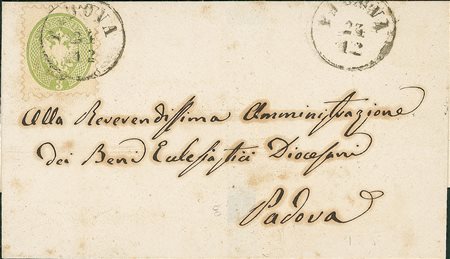 PADOVA
24
12
3
PADOVA
24
12
Alla Reverendissima Amministrazione
dei Beni Ecclesiastici Diocesani
Padova